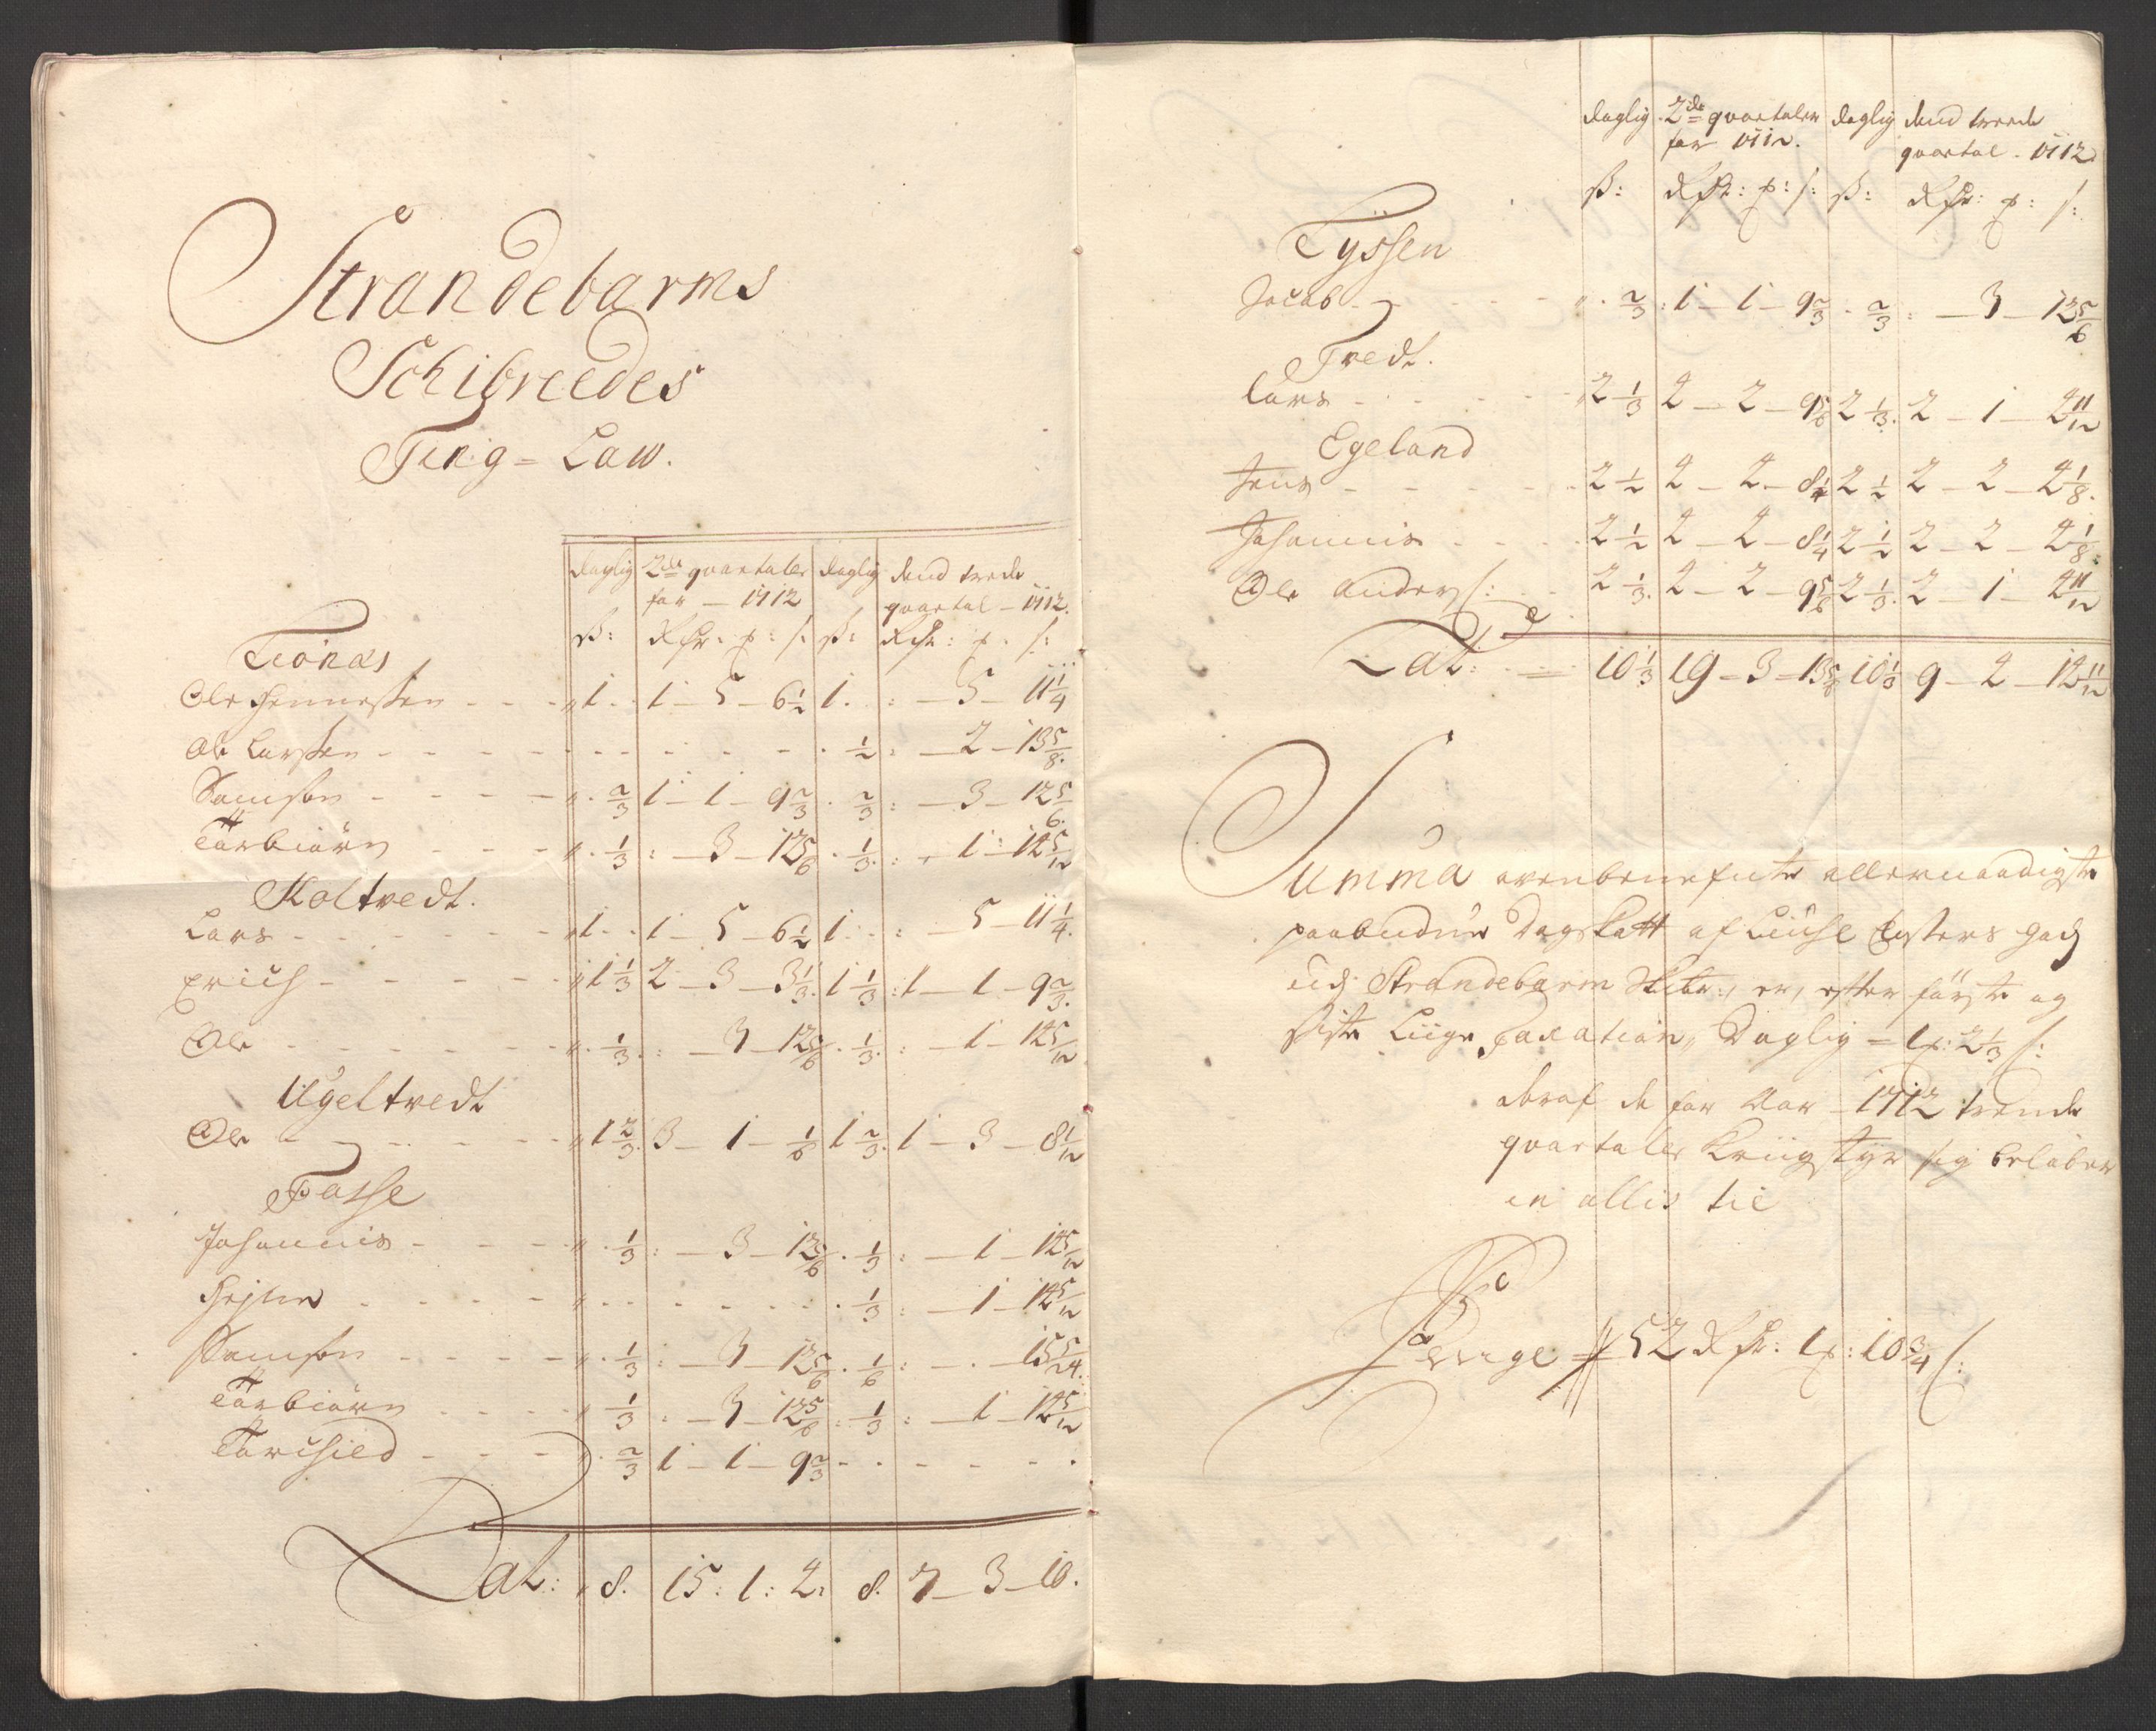 Strandebarms
Schibreedes
Ting-Law.
daglig 2de quartaler daglig dend trede
for - 1712 quartal - 1712.
ß: Rdr: ß: ß: Rdr:
Tionæs
Ole Hennessen - - - 1 1 - 5 - 6 1/2 1 : - 5 - 11 1/4
Ole Larssen - - - - 1/2 : - 2 - 13 5/8
Samson - - - - 2/3 1 - 1 - 9 2/3 2/3 : - 3 - 12 5/6
Torbiørn - - - 1/3 : - 3 - 12 5/6 1/3 : - 1 - 14 5/12
Koltvedt.
Lars - - - - 1 1 - 5 - 6 1/2 1 : - 5 - 11 1/4
Erich - - - - 1 1/3 2 - 3 - 3 1/3 1 1/3 : 1 - 1 - 9 2/3
Ole - - - - 1/3 : - 3 - 12 5/6 1/3 : - 1 - 14 5/12
Ugeltvedt
Ole - - - - 1 2/3 3 - 1 - 1/6 1 2/3 1 - 3 - 8 1/12
Fosse
Johannis - - - 1/3 : - 3 - 12 5/6 1/3 : - 1 - 14 5/12
- - - - 1/3 : - 1 - 14 5/12
Samson - - - - 1/3 : - 3 - 12 5/6 1/6 : - 15 5/24
Torbiørn - - - 1/3 : - 3 - 12 5/6 1/3 : - 1 - 14 5/12
Torchild - - - 2/3 1 - 1 - 9 2/3 - - - -
Lat: 8. 15 : 1 : 4 : 8. 7 - 3 - 10.
daglig 2de quartaler daglig dend treede
for 1712. quartal - 1712
ß: Rdr: ß: ß: Rdr:
Tyssen
Jacob - - - 2/3 : 1 - 1 - 9 2/3 2/3 : - 3 - 12 5/6
Tvedt.
Lars - - - 2 1/3 4 - 2 - 9 5/6 2 1/3 2 - 1 - 4 11/12
Egeland
Jens - - - 2 1/2 4 - 4 - 8 1/4 2 1/2 2 - 2 - 4 1/8
Johannis - - - 2 1/2 4 - 4 - 8 1/4 2 1/2 2 - 2 - 4 1/8
Ole Anders: - 2 1/3 4 - 2 - 9 5/6 2 1/3 2 - 1 - 4 11/12
Lat: - 10 1/3 19 - 3 - 13 5/6 10 1/3 9 - 4 - 14 11/12
Summa ovenbenefnte allernaadigste
paabudne Dagskatt af Liuse Closters Gods
udj Strandebarm Skibr:, er, efter første og
siste Liige Taxation, Daglig = 1 : 2 1/3
deraf de for Aar - 1712 trende
quartaler Kriigstyr sig beløber
in allis til
Penge 52 Rdr: 1 : 10 3/4